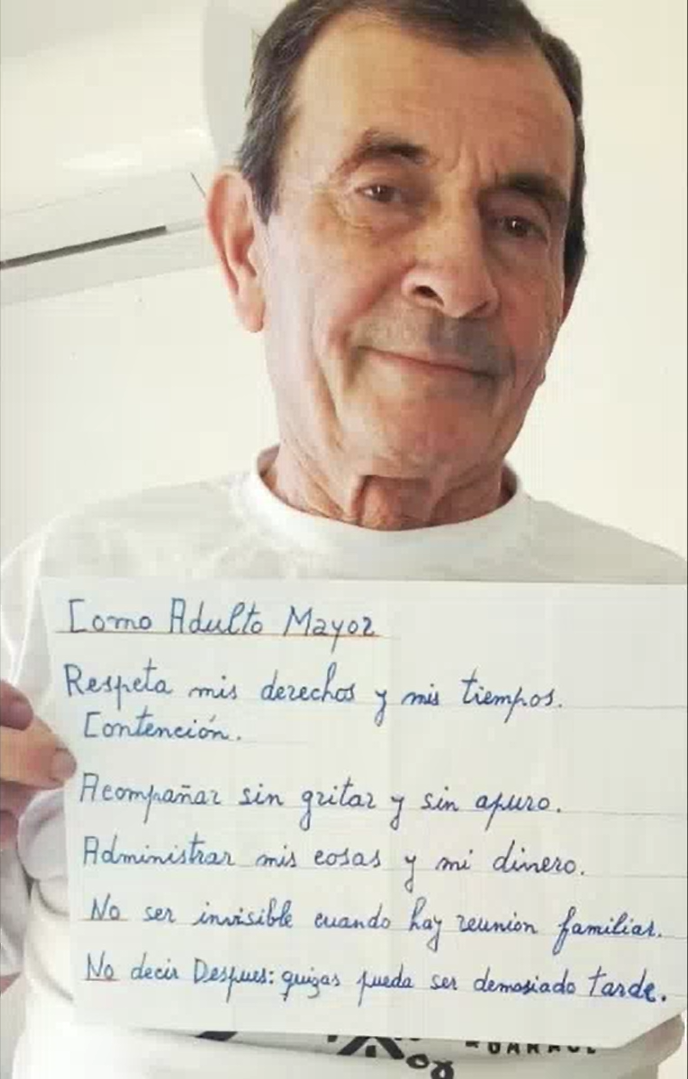 Como Adulto Mayor
Respeta mis derechos y mis tiempos.
Contención.
Acompañar sin gritar y sin apuro.
Administrar mis cosas y mi dinero.
No ser invisible cuando hay reunion familiar.
No decir Despues: quizas pueda ser demasiado tarde.